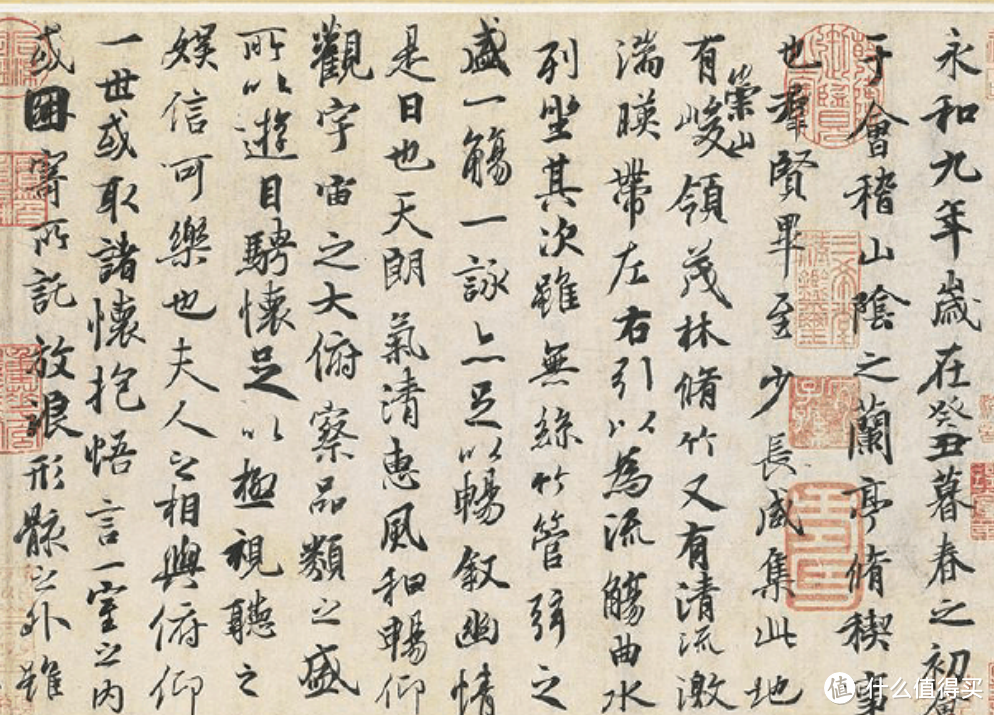 永和九年歲在癸丑暮春之初會
于會稽山陰之蘭亭脩稧事
也羣賢畢至少長咸集此地
有崇山峻領茂林脩竹又有清流激
湍暎帶左右引以為流觴曲水
列坐其次雖無絲竹管弦之
盛一觴一詠亦足以暢叙幽情
是日也天朗氣清惠風和暢仰
觀宇宙之大俯察品類之盛
所以遊目騁懷足以極視聽之
娛信可樂也夫人之相與俯仰
一世或取諸懷抱悟言一室之内
或因寄所託放浪形骸之外雖
三希堂精鑑璽
宜子孫
值 什么值得买